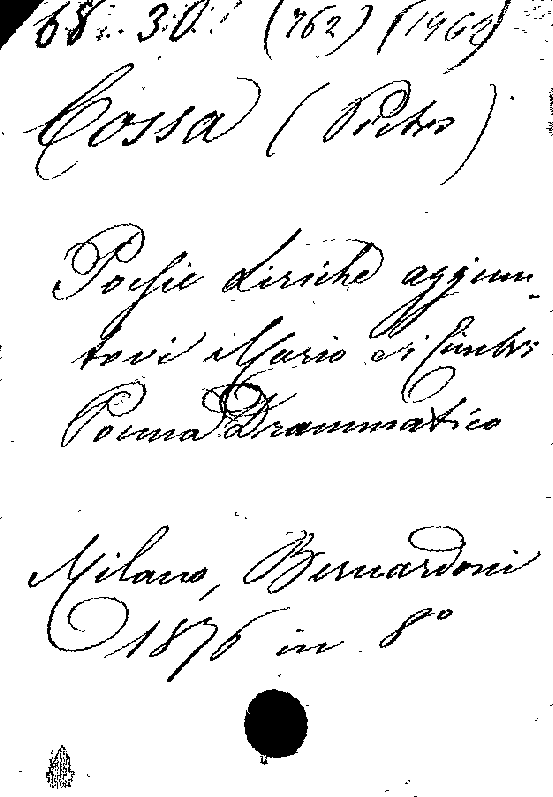 68. 30. (762) (1962)
Cossa (Pietro)
Poesie Liriche aggiun-
tovi Mario e i Cimbri
Poema Drammatico
Milano, Bernardoni
1876 in 8º